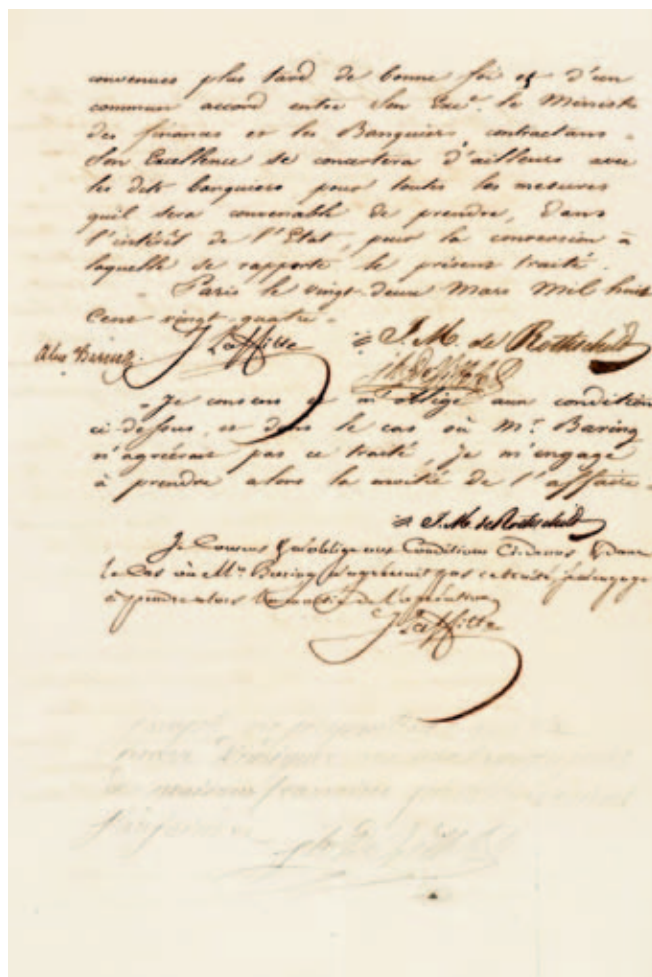 convenues plus tard de bonne foi et d'un
commun accord entre Son Exce. le Ministre
des finances et les Banquiers contractans.
Son Excellence se concertera d'ailleurs avec
les dits banquiers pour toutes les mesures
qu'il sera convenable de prendre, dans
l'intérêt de l'Etat, pour la conversion à
laquelle se rapporte le présent traité.
Paris le vingt-deux Mars Mil huit
Cent vingt-quatre.
J Laffitte J. M. de Rothschild
Je consens et m'oblige aux conditions
ci-dessus, et dans le cas où Mr. Baring
n'agréerait pas ce traité, je m'engage
à prendre alors la moitié de l'affaire.
J. M. de Rothschild
Je Consens & m'oblige aux Conditions Ci-dessus & dans
le Cas où Mr. Baring n'agréerait pas ce traité, je m'engage
à prendre alors la moitié de l'opération
J Laffitte